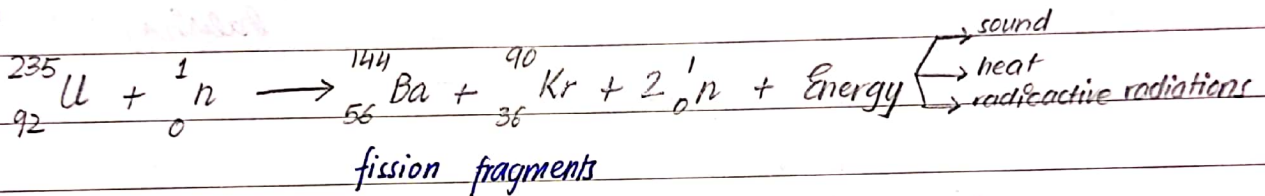 sound
²³⁵₉₂U + ¹₀n ⟶ ¹⁴⁴₅₆Ba + ⁹⁰₃₆Kr + 2 ¹₀n + Energy → heat
radicactive radiations
fission fragments